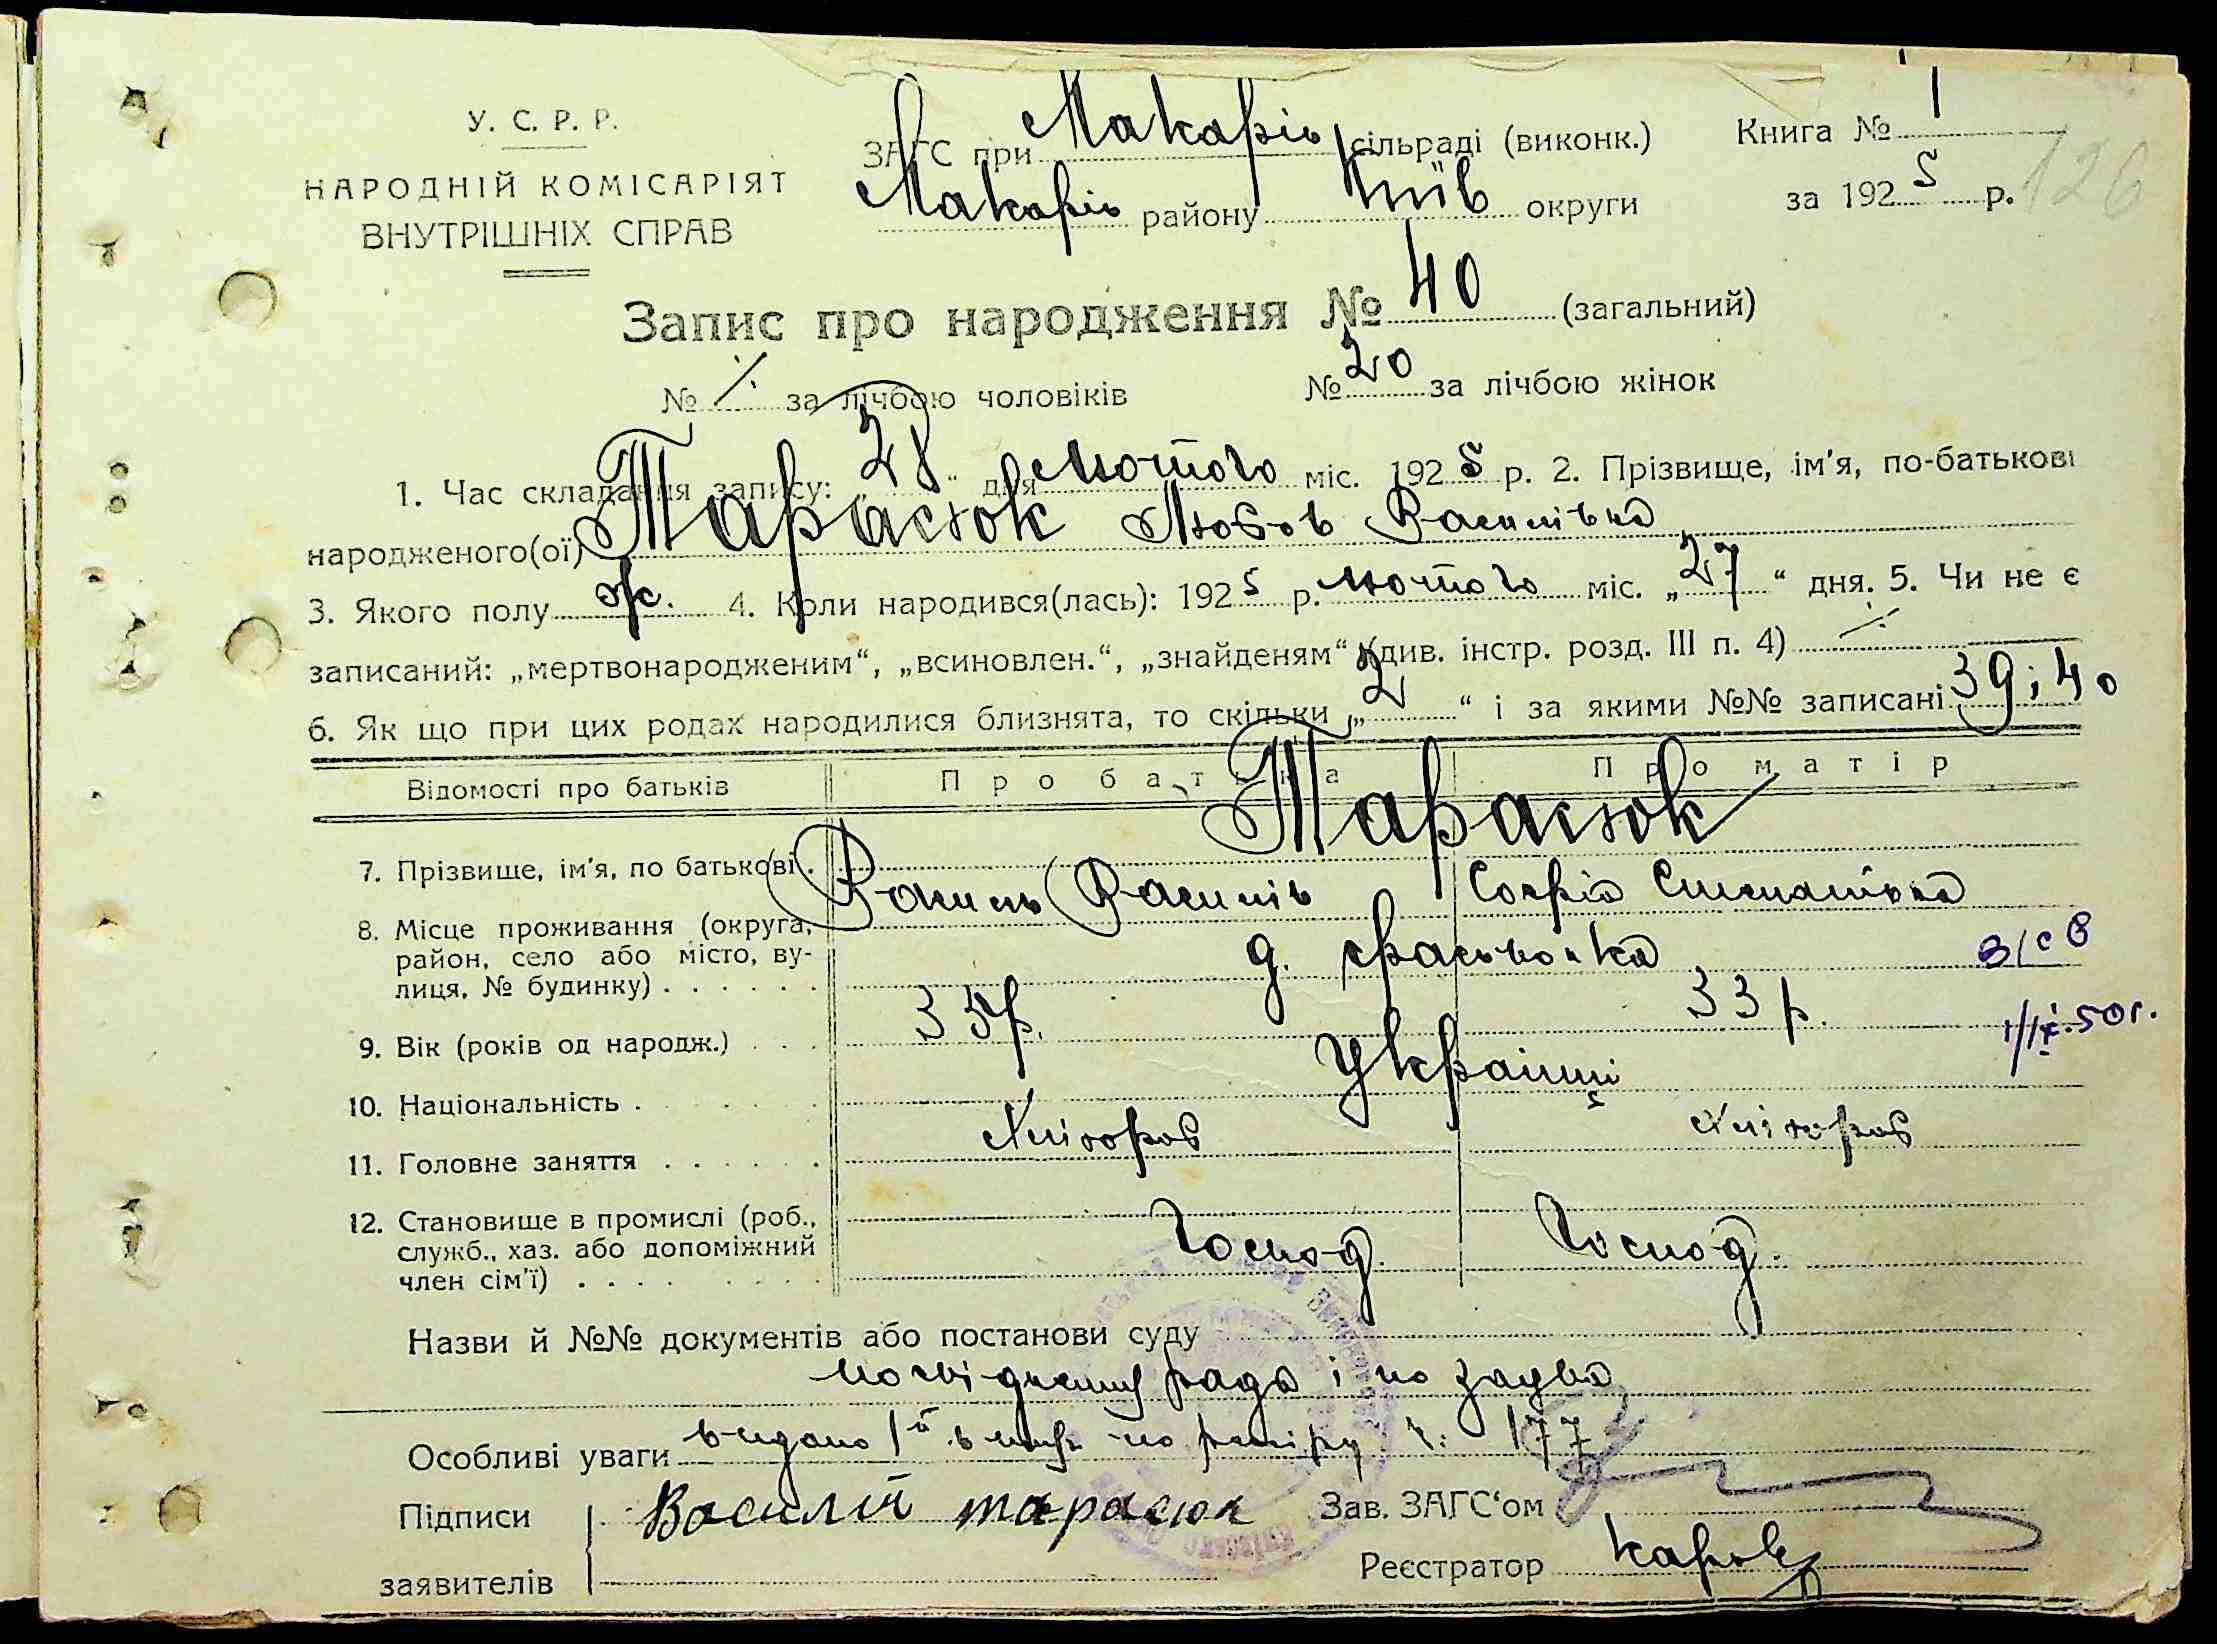 У. С. Р. Р.
НАРОДНІЙ КОМІСАРІЯТ
ВНУТРІШНІХ СПРАВ
ЗАГС при Макарів сільраді (виконк.)
Макарів району Київ округи
Книга № 1
за 1925 р.
126
Запис про народження № 40 (загальний)
№ ⁒ за лічбою чоловіків № 20 за лічбою жінок
1. Час складання запису: „28“ дня лютого міс. 1925 р. 2. Прізвище, ім'я, по-батькові
народженого(ої) Тарасюк Любов Василівна
3. Якого полу ж. 4. Коли народився(лась): 1925 р. лютого міс. „27“ дня. 5. Чи не є
записаний: „мертвонародженим“, „всиновлен.“, „знайденям“ (див. інстр. розд. III п. 4) ⁒
6. Як що при цих родах народилися близнята, то скільки „2“ і за якими №№ записані 39; 40
Відомості про батьків Про батька Про матір
Тарасюк
7. Прізвище, ім'я, по батькові. Василь Василів Софія Степанівна
8. Місце проживання (округа,
район, село або місто, ву-
лиця, № будинку) . . . . . . д.
9. Вік (років од народж.) . . . 33 р. 33 р.
1/IX.50 г.
10. Національність . . . . . . Українці
11. Головне заняття . . . . . . Хлібороб Хлібороб
12. Становище в промислі (роб.,
служб., хаз. або допоміжний
член сім'ї) . . . . . . . . Господ. Господ.
Назви й №№ документів або постанови суду
рада і по заява
Особливі уваги видано 1й по г: 177
Підписи
заявителів
Василій тарасюк
Зав. ЗАГС'ом
Реєстратор